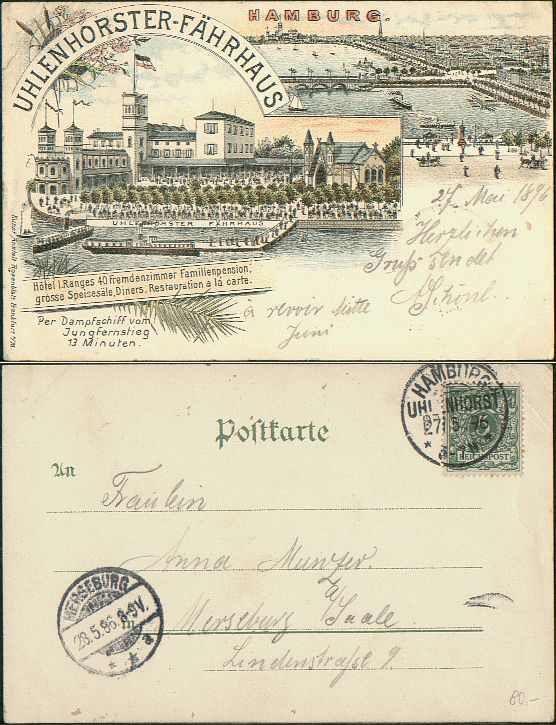 HAMBURG.
UHLENHORSTER-FÄHRHAUS
UHLENHORSTER FÄHRHAUS
27 Mai 1896
Herzlichen
Gruß sendet
Hôtel I. Ranges 40 Fremdenzimmer Familienpension,
grosse Speisesäle, Diners, Restauration a lá carte.
Per Dampfschiff vom
Jungfernstieg
13 Minuten.
à revoir Mitte
Juni
HAMBURG
UHLENHORST
27.5.96
REICHSPOST
Postkarte
An
Fräulein
Anna
MERSEBURG
28.5.96.8-9V.
a
in Merseburg a/ Saale
Lindenstraße 9
80.-